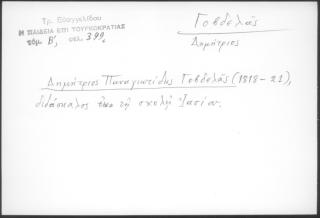 Τρ. Ευαγγελίδου
Η ΠΑΙΔΕΙΑ ΕΠΙ ΤΟΥΡΚΟΚΡΑΤΙΑΣ
τόμ. Β', σελ. 399.
Γοβδελᾶς
Δημήτριος
Δημήτριος Παναγιωτίδης Γοβδελᾶς (1818-21),
διδάσκαλος τῇ σχολῇ Ἰασίου.